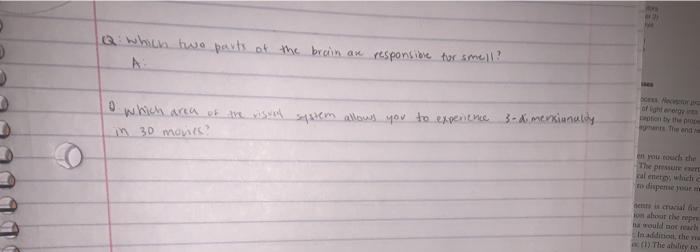 Q: Which two parts of the brain are responsible for smell?
A:
Q Which area of the visual system allows you to experience 3-dimensionality
in 3D movies?
of light energy into
ception by the
The end
en you touch the
The pressure exert
cal energy, which c
to dispense your m
is crucial for
ion about the
na would not reach
In addition, the
(1) The ability